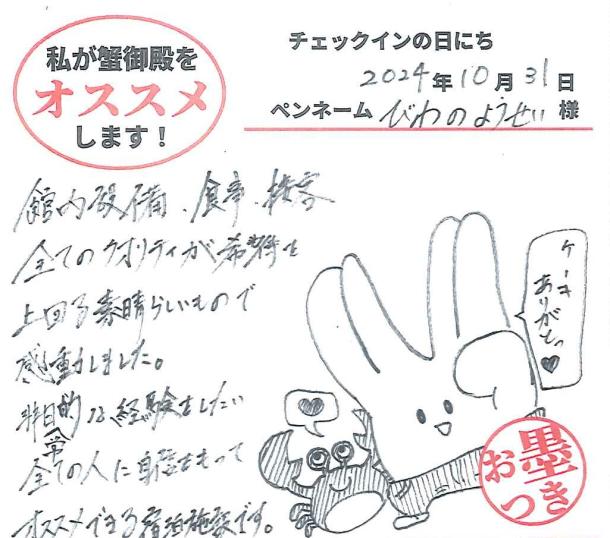 私が蟹御殿を
オススメ
します！
チェックインの日にち
2024年10月31日
ペンネーム びわのようせい 様
館内設備、食事、接客
全てのクオリティが期待を
上回る素晴らしいもので
感動しました。
非日常的な経験をしたい
全ての人に自信をもって
オススメできる宿泊施設です。
ケーキ
ありがとっ♥
お墨
つき